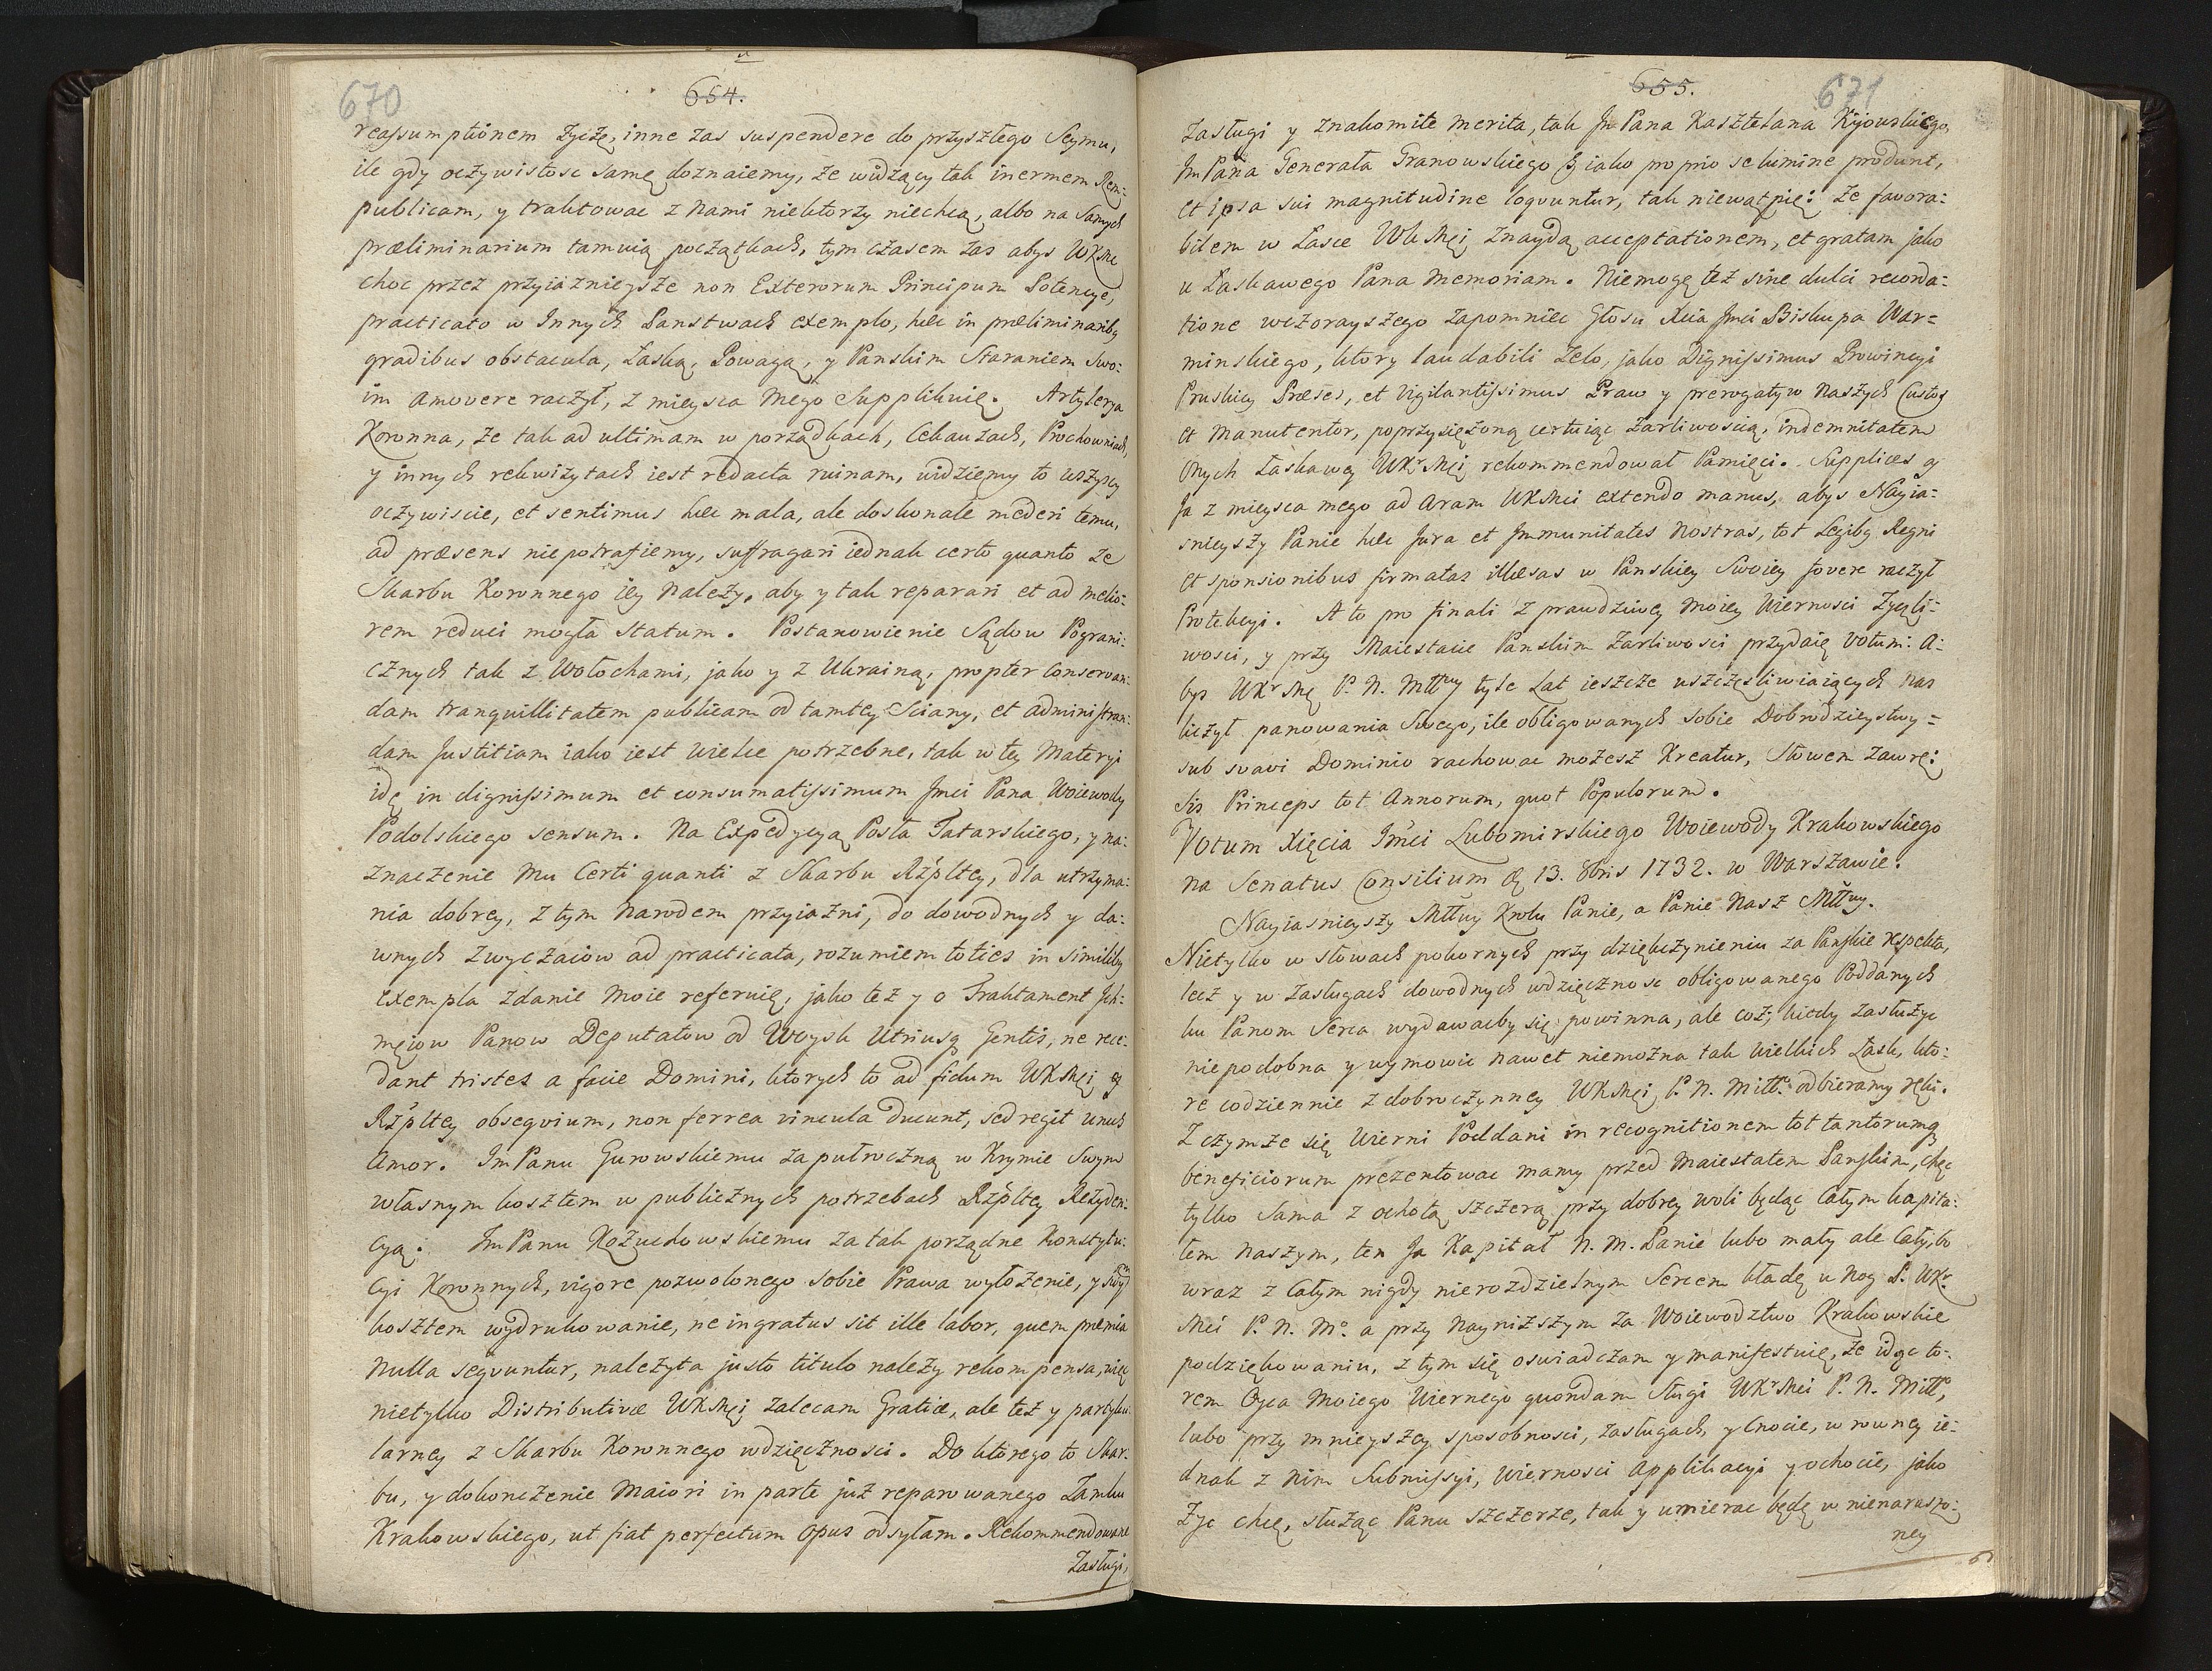 670
654.
reassumptionem życzę, inne zas suspendere do przyszłego Seymu,
ile gdy oczywistosc samę doznaiemy, że widzący tak inermem Rem-
publicam, y traktowac z nami niektorzy niechcą, albo na samych
præliminarium tamuią początkach, tym czasem zas abys WKMc
choc przez przyiaznieysze non Exterorum Principum Potencye,
practicato w Innych Panstwach exemplo, hæc in præliminaribq
gradibus obstacula, Łaską, Powagą, y Panskim Staraniem Swo-
im amovere raczył, z mieysca mego Supplikuię. Artylerya
Koronna, że tak ad ultimam w porządkach, Cekauzach, Prochowniach,
y innych rekwizytach iest redacta ruinam, widziemy to wszyscy
oczywiscie, et sentimus hæc mala, ale doskonale mederi temu,
ad præsens niepotrafiemy, suffragari iednak certo quanto ze
Skarbu Koronnego iey należy, aby y tak reparari et ad melio-
rem reduci mogła statum. Postanowienie Sądow Pograni-
cznych tak z Wołochami, jako y z Ukrainą, propter conservan-
dam tranquillitatem publicam od tamtey Sciany, et administran-
dam Justitiam iako iest wielce potrzebne, tak w tey Materyi
idę in dignissimum et consumatissimum Jmci Pana Woiewody
Podolskiego sensum. Na Expedycyą Posła Tatarskiego, y na-
znaczenie mu Certi quanti z Skarbu Rzpltey, dla utrzyma-
nia dobrey, z tym Narodem przyiazni, do dowodnych y da-
wnych zwyczaiow ad practicata, rozumiem toties in similibq
exempla zdanie moie referuię, jako też y o Traktament Jch-
mciow Panow Deputatow od Woysk Utriusq Gentis, ne rece-
dant tristes a facie Domini, ktorych to ad fidum WKMci y
Rzpltey obsequium, non ferrea vincula ducunt, sed regit unus
Amor. Jm Panu Gurowskiemu za pułroczną w Krymie Swym
własnym kosztem w publicznych potrzebach Rzpltey Rezyden-
cyą. Jm Panu Kożuchowskiemu za tak porządne Konstytu-
cyi Koronnych, vigore pozwolonego sobie Prawa wyłożenie, y swym
kosztem wydrukowanie, ne ingratus sit ille labor, quem præmia
nulla sequuntur, należyta justo titulo należy rekompensa, więc
nietylko Distributivæ WKMci zalecam Gratiæ, ale też y partyku-
larney z Skarbu Koronnego wdzięcznosci. Do ktorego to Skar-
bu, y dokonczenie Maiori in parte już reparowanego Zamku
Krakowskiego, ut fiat perfectum opus odsyłam. Rekommendowane
Zasługi,
655.
671
Zasługi y znakomite merita, tak Jm Pana Kasztelana Kijowskiego,
Jm Pana Generała Granowskiego iako proprio se lumine produnt,
et ipsa sui magnitudine loquuntur, tak niewątpię: że favora-
bilem w Łasce WKMci znaydą acceptationem, et gratam jako
u Łaskawego Pana memoriam. Niemogę też sine dulci recorda-
tione wczorayszego zapomniec głosu Xcia Jmci Biskupa War-
minskiego, ktory laudabili zelo, jako Dignissimus Prowincyi
Pruskiey Præses, et vigilantissimus Praw y prerogatyw naszych Custos
et Manutentor, poprzysiężoną certuiąc żarliwoscią, indemnitatem
Onych Łaskawey WKrMci rekommendował Pamięci. Supplices y
Ja z mieysca mego ad aram WKMci extendo manus, abys Nayia-
snieyszy Panie hæc Jura et Immunitates nostras, tot Legibq Regni
et sponsionibus firmatas illæsas w Panskiey Swoiey fovere raczył
Protekcyi. A to pro finali z prawdziwey moiey wiernosci życzli-
wosci, y przy Maiestacie Panskim żarliwosci przydaię Votum: A-
bys WKrMc P. N. Młłwy tyle Lat ieszcze uszczęsliwiaiących nas
liczył panowania Swego, ile obligowanych sobie Dobrodzieystwy
sub suavi Dominio rachowac możesz Kreatur, słowem zawrę:
Sis Princeps tot Annorum, quot Populorum.
Votum Xięcia Jmci Lubomirskiego Woiewody Krakowskiego
na Senatus Consilium 13. 8bris 1732. w Warszawie.
Nayiasnieyszy Młłwy Krolu Panie, a Panie Nasz Młłwy.
Nietylko w słowach pokornych przy dziękczynieniu za Panskie respekta,
lecz y w zasługach dowodnych wdzięcznosc obligowanego Poddanych
ku Panom Serca wydawacby się powinna, ale coż, kiedy zasłużyc
niepodobna y wymowic nawet niemożna tak wielkich Łask, kto-
re codziennie z dobroczynney WKMci P. N. Miłło odbieramy ręki.
Z czymże się wierni Poddani in recognitionem tot tantorumq
beneficiorum prezentowac mamy przed Maiestatem Panskim, chęc
tylko sama z ochotą szczerą przy dobrey woli będąc całym kapita-
łem naszym, ten Ja Kapitał N. M. Panie lubo mały ale cały, bo
wraz z całym nigdy nierozdzielnym Sercem kładę u Nog P. WKr
Mci P. N. Mo. a przy nayniższym za Woiewodztwo Krakowskie
podziękowaniu, z tym się oswiadczam y manifestuię, że idąc to-
rem Oyca moiego wiernego quondam sługi WKrMci P. N. Miłło,
lubo przy mnieyszey sposobnosci, zasługach, y Cnocie, w rowney ie-
dnak z nim Submissyi, wiernosci applikacyi y ochocie, jako
życ chcę, służąc Panu szczerze, tak y umierac będę w nienaruszo-
ney